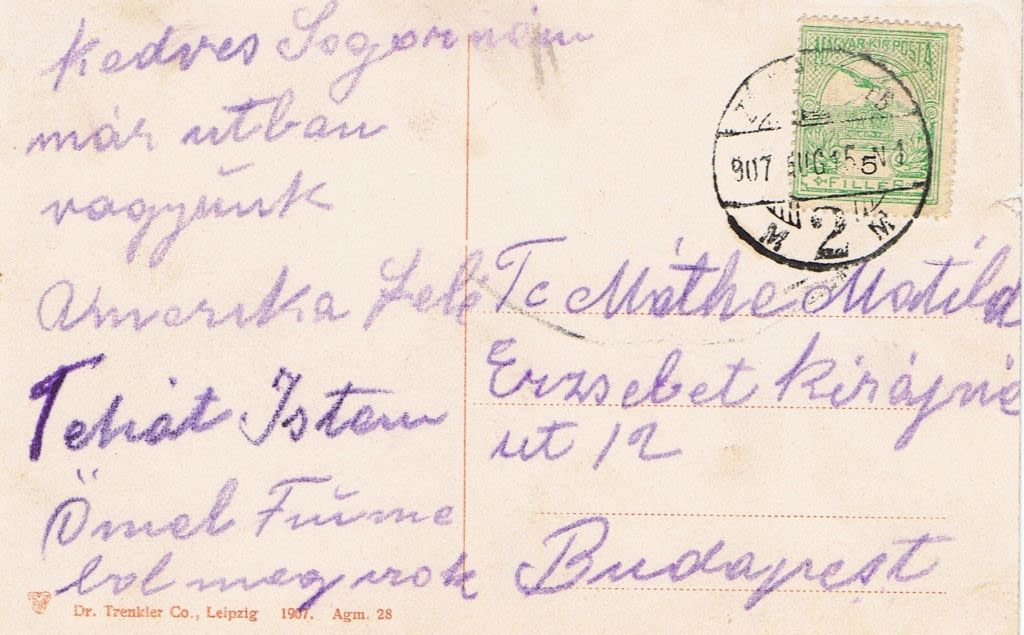 Kedves Sogornőm
már utban
vagyunk
Amerika Felé
Tehát Isten
Önnel Fiume
bol meg irok
Tc Máthe Matild
Erzsebet Királyné
ut 12
Budapest
MAGYAR KIR. POSTA
5
FILLÉR
907 AUG 15 N1
2
Dr. Trenkler Co., Leipzig 1907. Agm. 28